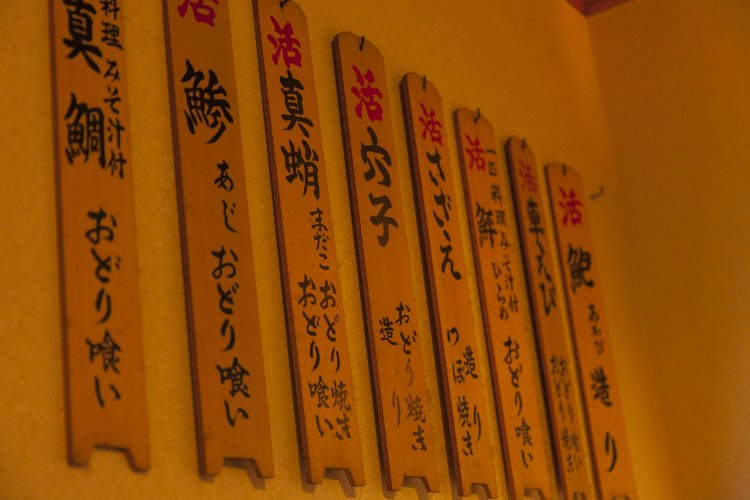 料理 みそ汁付
真鯛 おどり喰い
活 鯵 あじ おどり喰い
活 真蛸 まだこ
おどり焼き
おどり喰い
活 穴子
おどり焼き
造り
活 さざえ
造り
つぼ焼き
活 料理 みそ汁付
ひらめ おどり喰い
活 車えび
おどり喰い
おどり焼き
活 鮑 あわび 造り